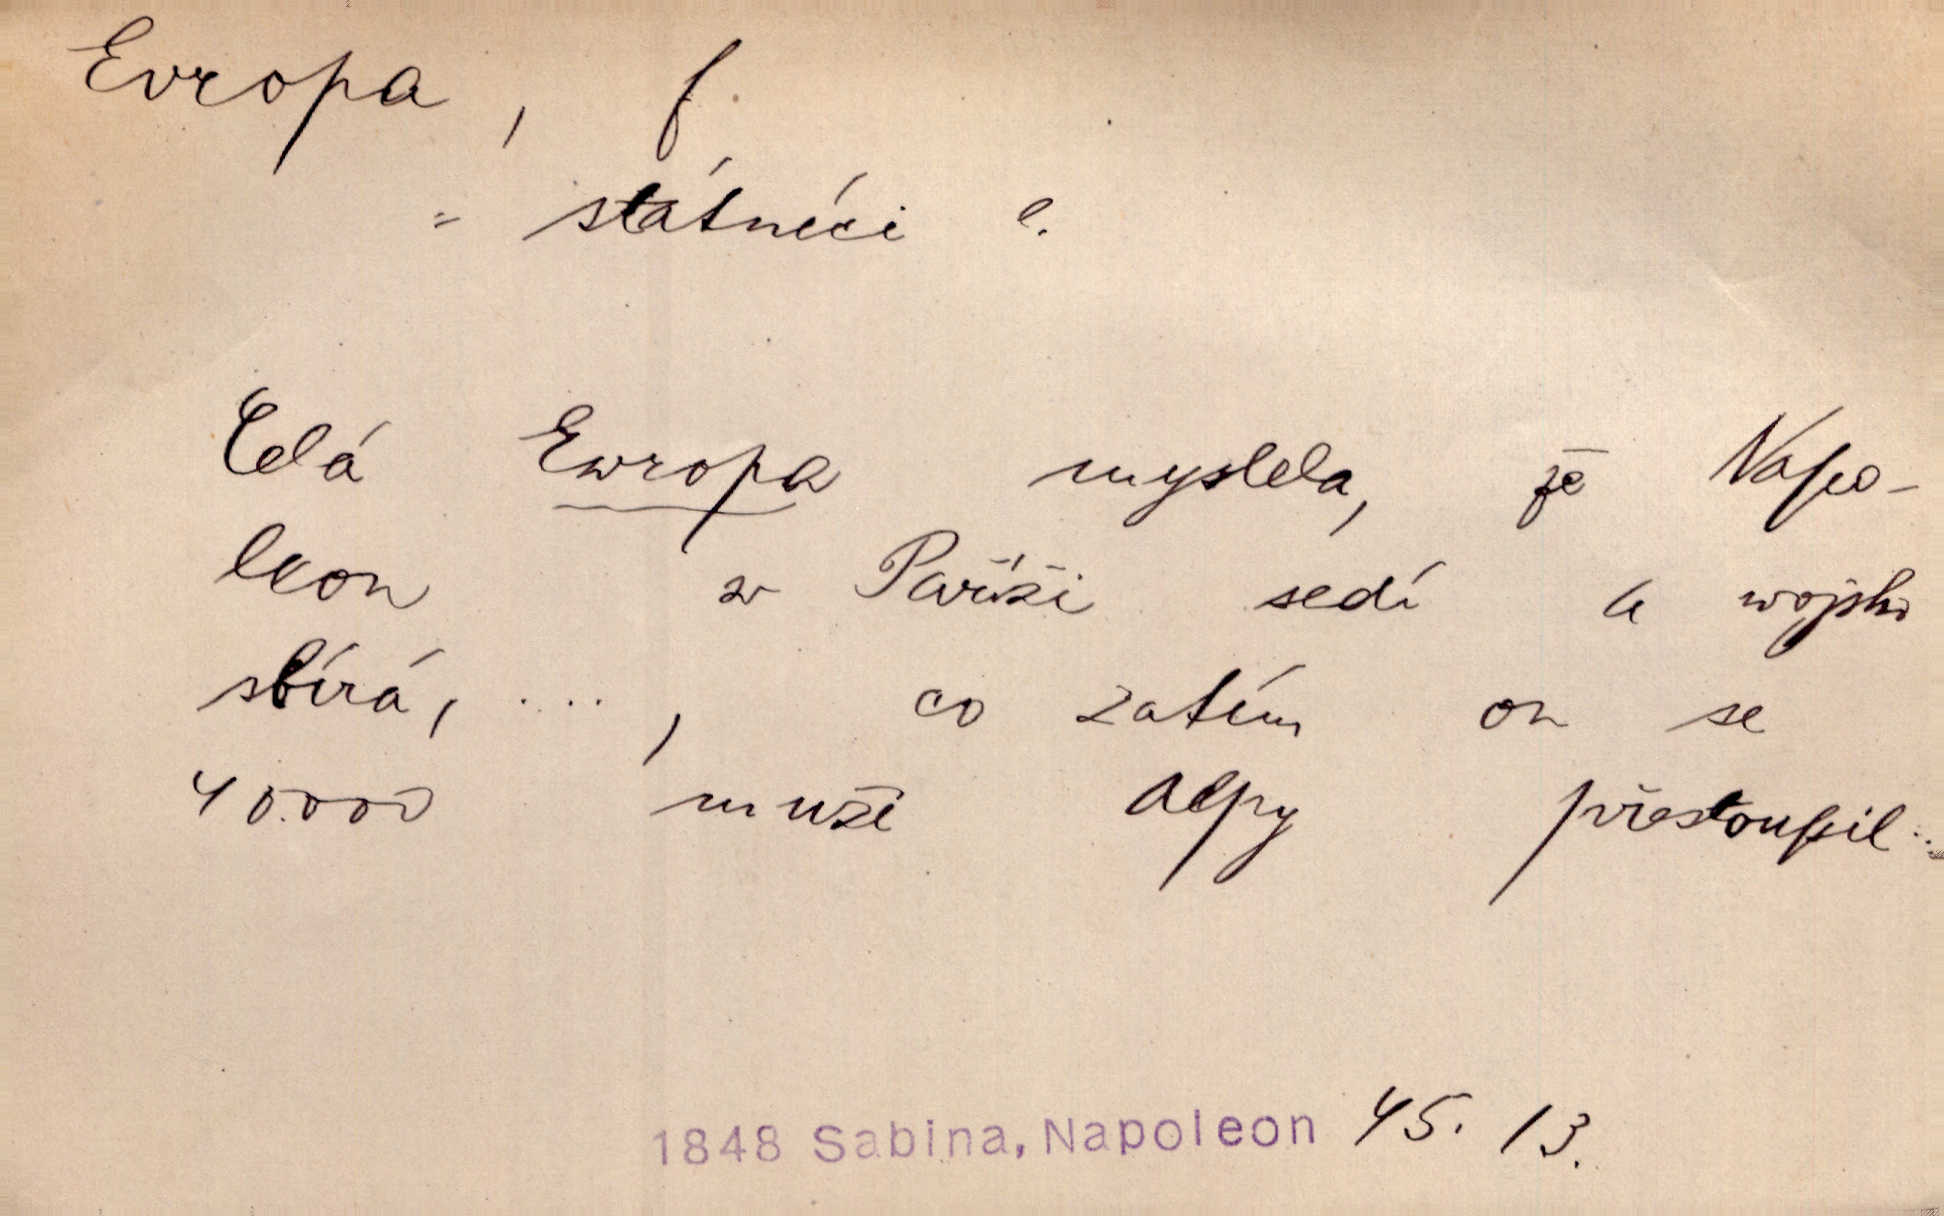 Evropa, f.
= státníci e.
Celá Ewropa myslela, že Napo-
leon w Paříži sedí a wojsko
sbírá, ...., co zatím on se
40.000 muži Alpy přestoupil...
1848 Sabina, Napoleon 45. 13.